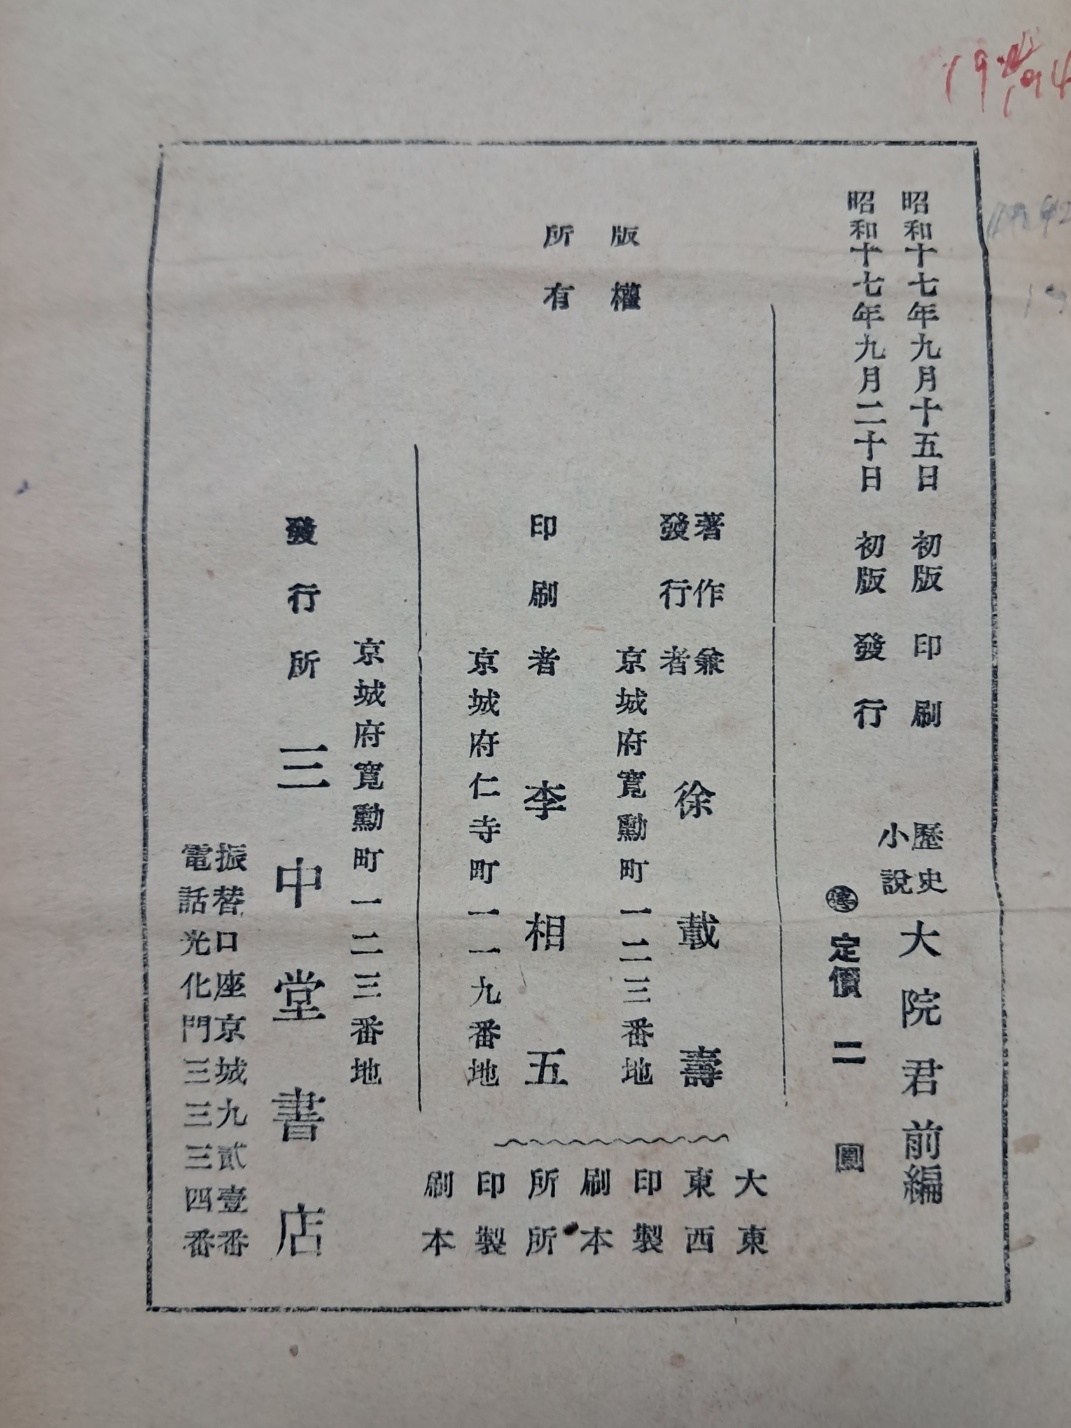 昭和十七年九月十五日 初版印刷
昭和十七年九月二十日 初版發行
歷史小說 大院君 前編
定價 二圓
版權所有
著作兼發行者 徐載壽
京城府寬勳町一二三番地
印刷者 李相五
京城府仁寺町一一九番地
大東印刷所印刷
東西製本所製本
京城府寬勳町一二三番地
發行所 三中堂書店
振替口座京城九貳壹番
電話光化門三三三四番